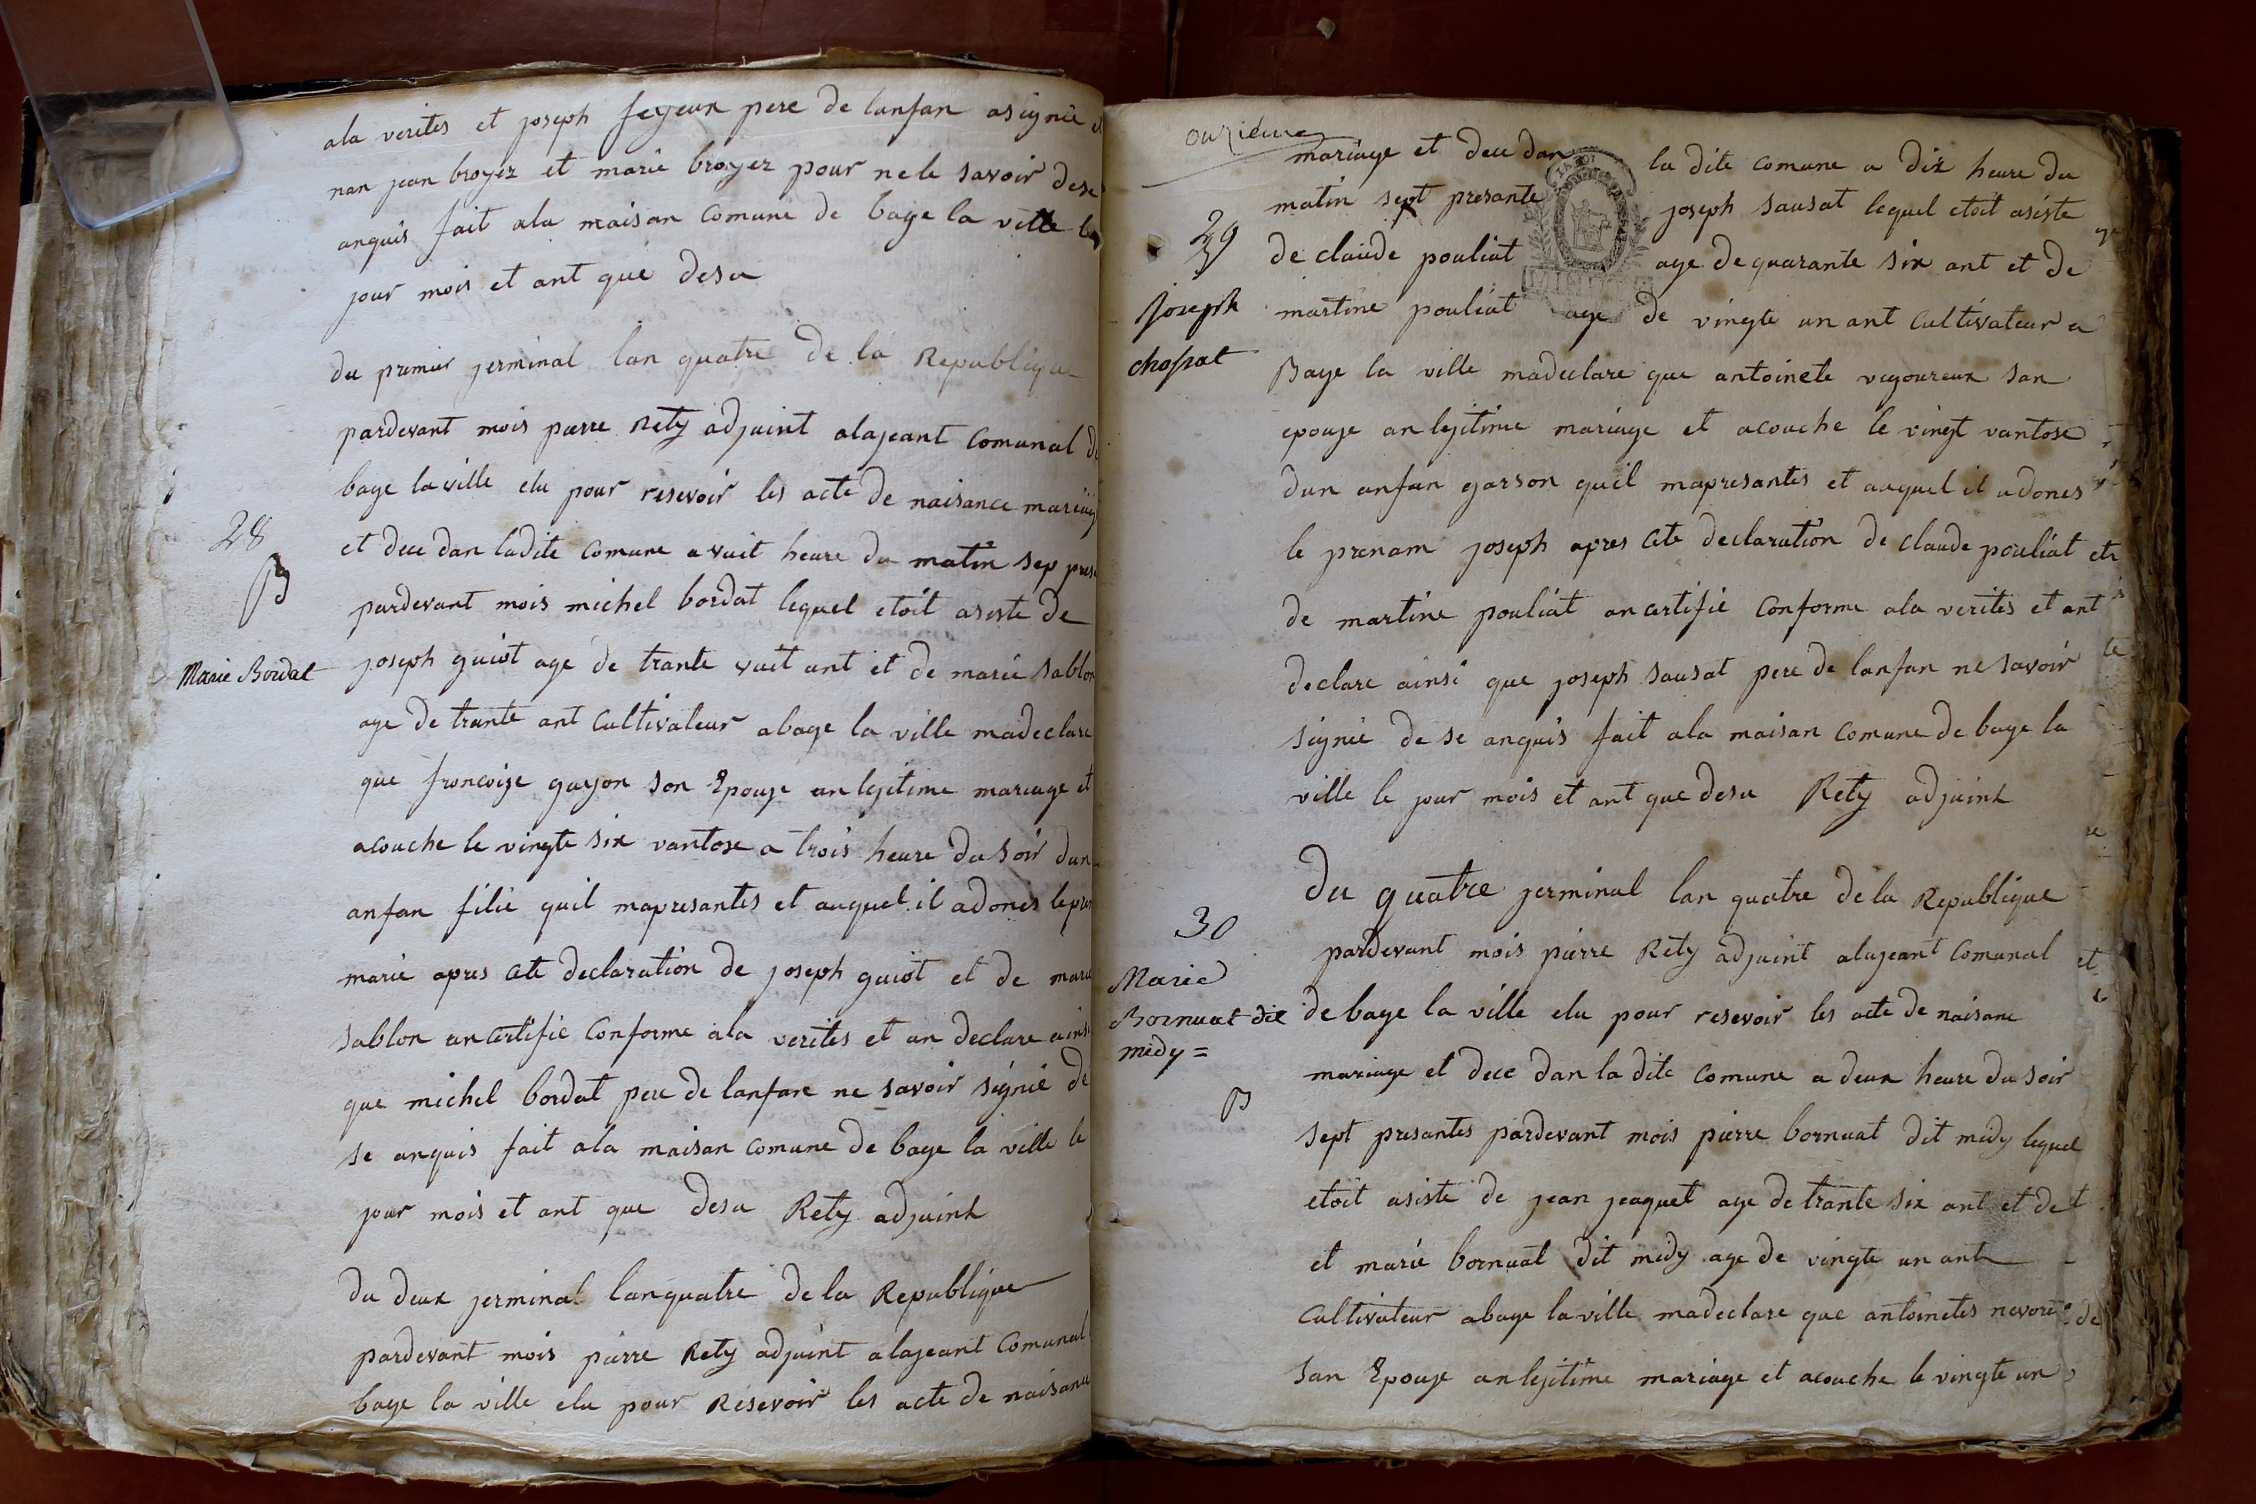 ala verites et joseph feyeux pere de lanfan asignié et
nan jean broyez et marie broyez pour ne le savoir dese
anquis fait ala maisan Comune de bage la ville le
jour mois et ant que desu
du premier germinal lan quatre de la Republique
pardevant mois pierre Rety adjuint alajeant Comunal de
bage la ville elu pour resevoir les acte de naisance mariage
et dece dan ladite Comune a vuit heure du matin sep presa
pardevant mois michel bordat lequel etoit asiste de
28
B
Marie Bordat
joseph guiot age de trante vuit ant et de marie sablon
age de trante ant Cultivateur abage la ville madeclare
que francoise guyon son Epouse anlejitime mariage et
acouche le vingte six vantose a trois heure du soir dun
anfan filie quil mapresantes et auquel il adones le pren
marie apres cete declaration de joseph guiot et de marie
sablon ancertifie Conforme ala verites et an declare ainsi
que michel bordat pere de lanfan ne savoir signié de
se anquis fait ala maisan Comune de bage la ville le
jour mois et ant que desu Rety adjuint
du deux germinal lanquatre de la Republique
pardevant mois pierre Rety adjuint alajeant Comunal
bage la ville elu pour Resevoir les acte de naisance
onzieme
mariage et dece dan la dite Comune a dix heure du
matin sept presante joseph sausat lequel etoit asiste
29
joseph
chossat
de claude pouliat age de quarante six ant et de
martine pouliat age de vingte un ant Cultivateur a
Bage la ville madeclare que antoinete vigoureux san
epouse anlejitime mariage et acouche le vingt vantose
dun anfan garson quil mapresantes et auquel il adones
le prenam joseph apres cete declaration de claude pouliat et
de martine pouliat ancertifie Conforme ala verites et ant
declare ainsi que joseph sausat pere de lanfan ne savoir
signié de se anquis fait ala maisan Comune de bage la
ville le jour mois et ant que desu Rety adjuint
30
Marie
Bornuat dit
midy =
B
Du quatre germinal lan quatre de la Republique
pardevant mois pierre Rety adjuint alajeant Comunal
de bage la ville elu pour resevoir les acte de naisanc
mariage et dece dan la dite Comune a deux heure du soir
sept presantes pardevant mois pierre bornuat dit midy lequel
etoit asiste de jean jeaquet age de trante six ant et de
et marie bornuat dit midy age de vingte un ant
Cultivateur abage la ville madeclare que antoinetes nevore
san Epouse anlejitime mariage et acouche le vingte un